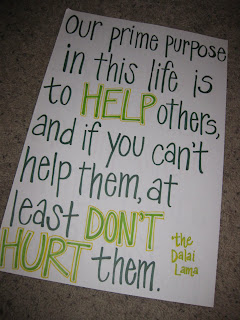 Our prime purpose
in this life is
to HELP others,
and if you can't
help them, at
least DON'T
HURT them.
-the
Dalai
Lama